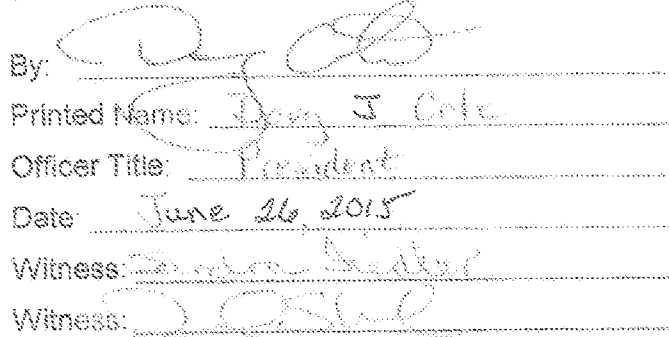 By:
Printed Name: Doug J Cote
Officer Title: President
Date: June 26, 2015
Witness:
Witness: